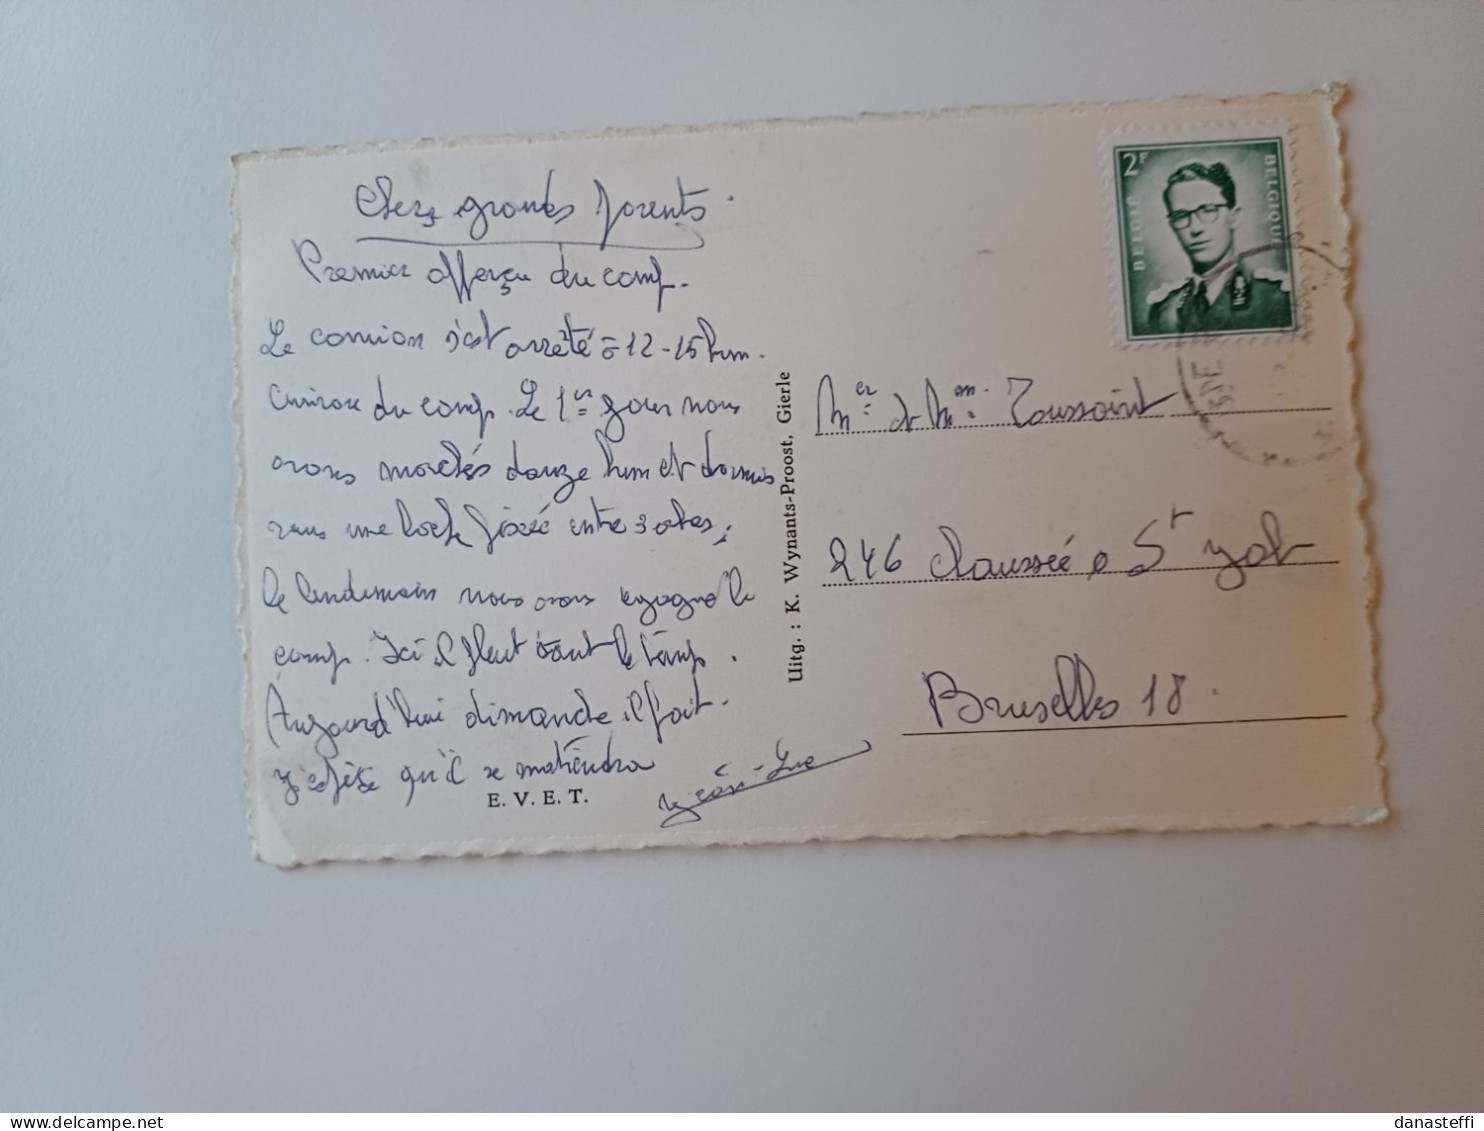 Chers grands parents.
Premier afferçu du camp.
Le camion s'est arrêté à 12-15 km.
environ du camp. Le 1er jour nous
avons marchés douze km et dormis
sous une bache fixée entre 3 arbres;
le lendemain nous avons regagné le
camp. Ici il pleut tout le temp.
Aujourd'hui dimanche il fait.
J'espère qu'il se matiendra
Jean-Luc
E. V. E. T.
Uitg. : K. Wynants-Proost, Gierle
2F
BELGIE
BELGIQUE
Mer et Mm. Toussaint
246 chaussée St Job
Bruxelles 18.
danasteffi